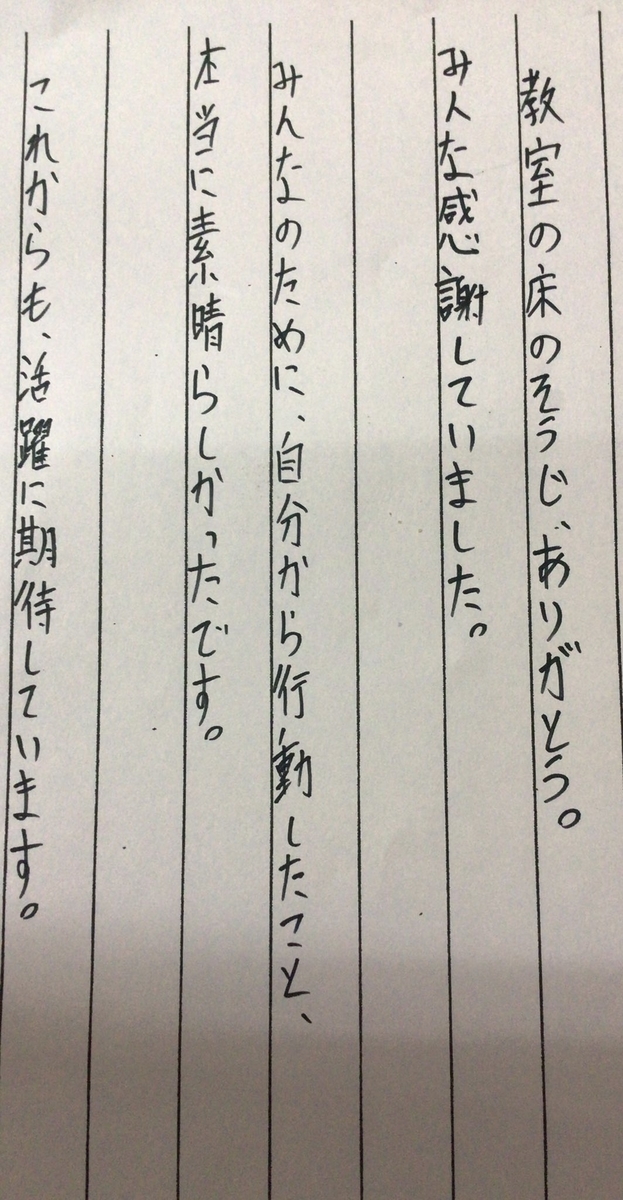 教室の床のそうじ、ありがとう。
みんな感謝していました。
みんなのために、自分から行動したこと、
本当に素晴らしかったです。
これからも、活躍に期待しています。